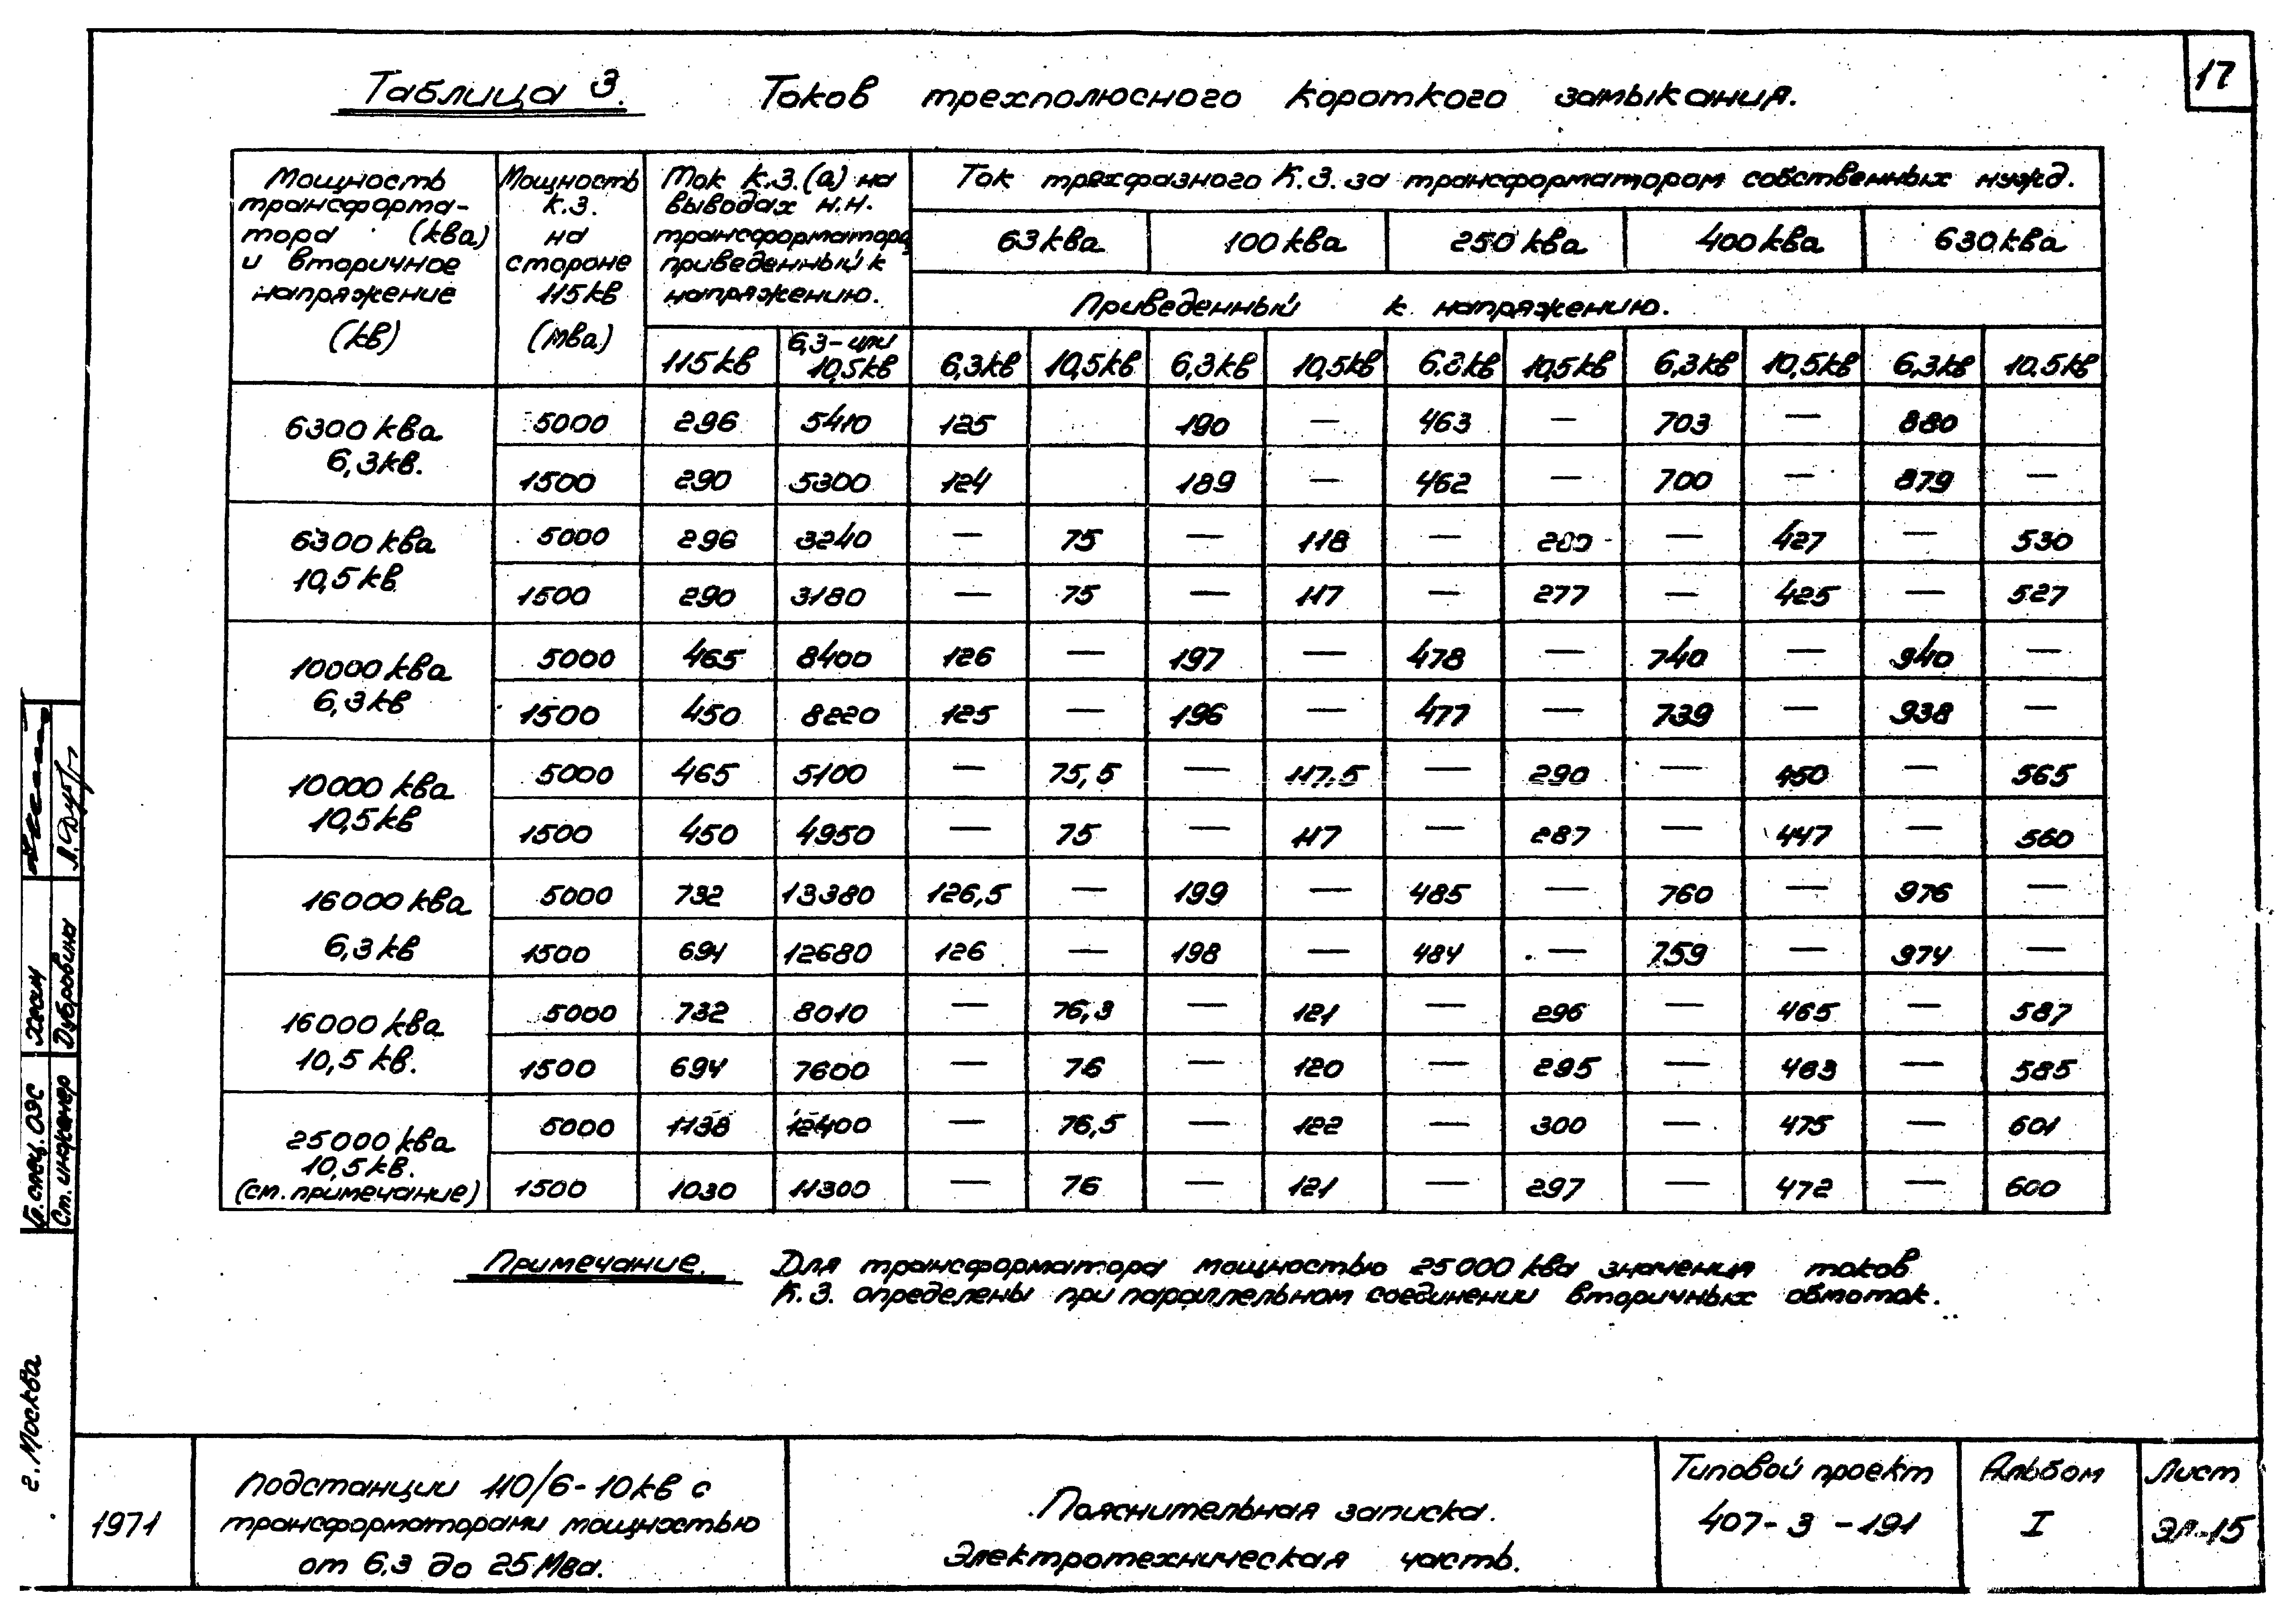 17
Таблица 3. Токов трехполюсного короткого замыкания.
Мощность трансформа-тора (ква) и вторичное напряжение (кв)
Мощность к.з. на стороне 115кв (мва)
Ток к.з.(а) на выводах н.н. трансформатора приведенный к напряжению.
Ток трехфазного К.З. за трансформатором собственных нужд.
63ква 100ква 250ква 400ква 630ква
Приведенный к напряжению.
115кв 6,3-или 10,5кв 6,3кв 10,5кв 6,3кв 10,5кв 6,3кв 10,5кв 6,3кв 10,5кв 6,3кв 10,5кв
6300ква 6,3кв.
5000 296 5410 125 190 — 463 — 703 — 880
1500 290 5300 124 189 — 462 — 700 — 879 —
6300ква 10,5кв
5000 296 3240 — 75 — 118 — 280 — 427 — 530
1500 290 3180 — 75 — 117 — 277 — 425 — 527
10000ква 6,3кв
5000 465 8400 126 — 197 — 478 — 740 — 940 —
1500 450 8220 125 — 196 — 477 — 739 — 938 —
10000 ква 10,5кв
5000 465 5100 — 75,5 — 117.5 — 290 — 450 — 565
1500 450 4950 — 75 — 117 — 287 — 447 — 560
16000ква 6,3кв
5000 732 13380 126,5 — 199 — 485 — 760 — 976 —
1500 694 12680 126 — 198 — 484 — 759 — 974 —
16000 ква 10,5 кв.
5000 732 8010 — 76,3 — 121 — 296 — 465 — 587
1500 694 7600 — 76 — 120 — 295 — 463 — 585
25000 ква 10,5кв. (см. примечание)
5000 1138 12400 — 76,5 — 122 — 300 — 475 — 601
1500 1030 11300 — 76 — 121 — 297 — 472 — 600
Примечание. Для трансформатора мощностью 25000 ква значения токов
К.З. определены при параллельном соединении вторичных обмоток.
Гл. спец. ОЭС Хаким
Ст. инженер Дубровина
г. Москва
1971
Подстанции 110/6-10кв с
трансформаторами мощностью
от 6.3 до 25Мва.
Пояснительная записка.
Электротехническая часть.
Типовой проект
407-3-191
Альбом
I
Лист
ЭЛ-15